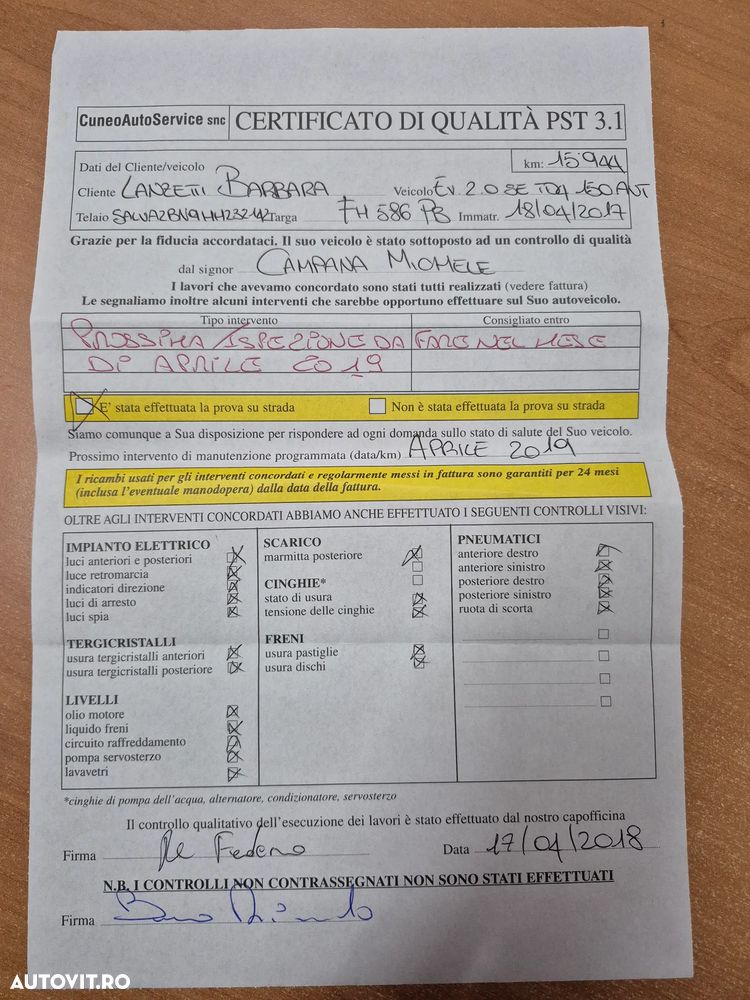 CuneoAutoService snc CERTIFICATO DI QUALITÀ PST 3.1
Dati del Cliente/veicolo km: 15944
Cliente LANZETTI BARBARA Veicolo EV. 2.0 SE TD4 150 AUT
Telaio Targa FH 586 PB Immatr. 18/04/2017
Grazie per la fiducia accordataci. Il suo veicolo è stato sottoposto ad un controllo di qualità
dal signor CAMPANA
I lavori che avevamo concordato sono stati tutti realizzati (vedere fattura)
Le segnaliamo inoltre alcuni interventi che sarebbe opportuno effettuare sul Suo autoveicolo.
Tipo intervento Consigliato entro
PROSSIMA ISPEZIONE DA FARE NEL MESE
DI APRILE 2019
E' stata effettuata la prova su strada Non è stata effettuata la prova su strada
Siamo comunque a Sua disposizione per rispondere ad ogni domanda sullo stato di salute del Suo veicolo.
Prossimo intervento di manutenzione programmata (data/km) APRILE 2019
I ricambi usati per gli interventi concordati e regolarmente messi in fattura sono garantiti per 24 mesi
(inclusa l'eventuale manodopera) dalla data della fattura.
OLTRE AGLI INTERVENTI CONCORDATI ABBIAMO ANCHE EFFETTUATO I SEGUENTI CONTROLLI VISIVI:
IMPIANTO ELETTRICO
luci anteriori e posteriori
luce retromarcia
indicatori direzione
luci di arresto
luci spia
TERGICRISTALLI
usura tergicristalli anteriori
usura tergicristalli posteriore
LIVELLI
olio motore
liquido freni
circuito raffreddamento
pompa servosterzo
lavavetri
SCARICO
marmitta posteriore
CINGHIE*
stato di usura
tensione delle cinghie
FRENI
usura pastiglie
usura dischi
PNEUMATICI
anteriore destro
anteriore sinistro
posteriore destro
posteriore sinistro
ruota di scorta
*cinghie di pompa dell'acqua, alternatore, condizionatore, servosterzo
Il controllo qualitativo dell'esecuzione dei lavori è stato effettuato dal nostro capofficina
Firma Data 17/04/2018
N.B. I CONTROLLI NON CONTRASSEGNATI NON SONO STATI EFFETTUATI
Firma
AUTOVIT.RO